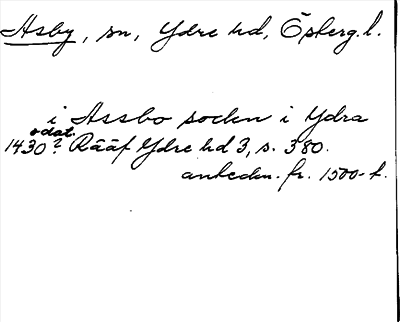 Asby, sn, Ydre hd, Österg. l.
i Assbo soclen i Ydra
odat.
1430? Rääf Ydre hd 3, s. 380.
anteckn. fr. 1500-t.